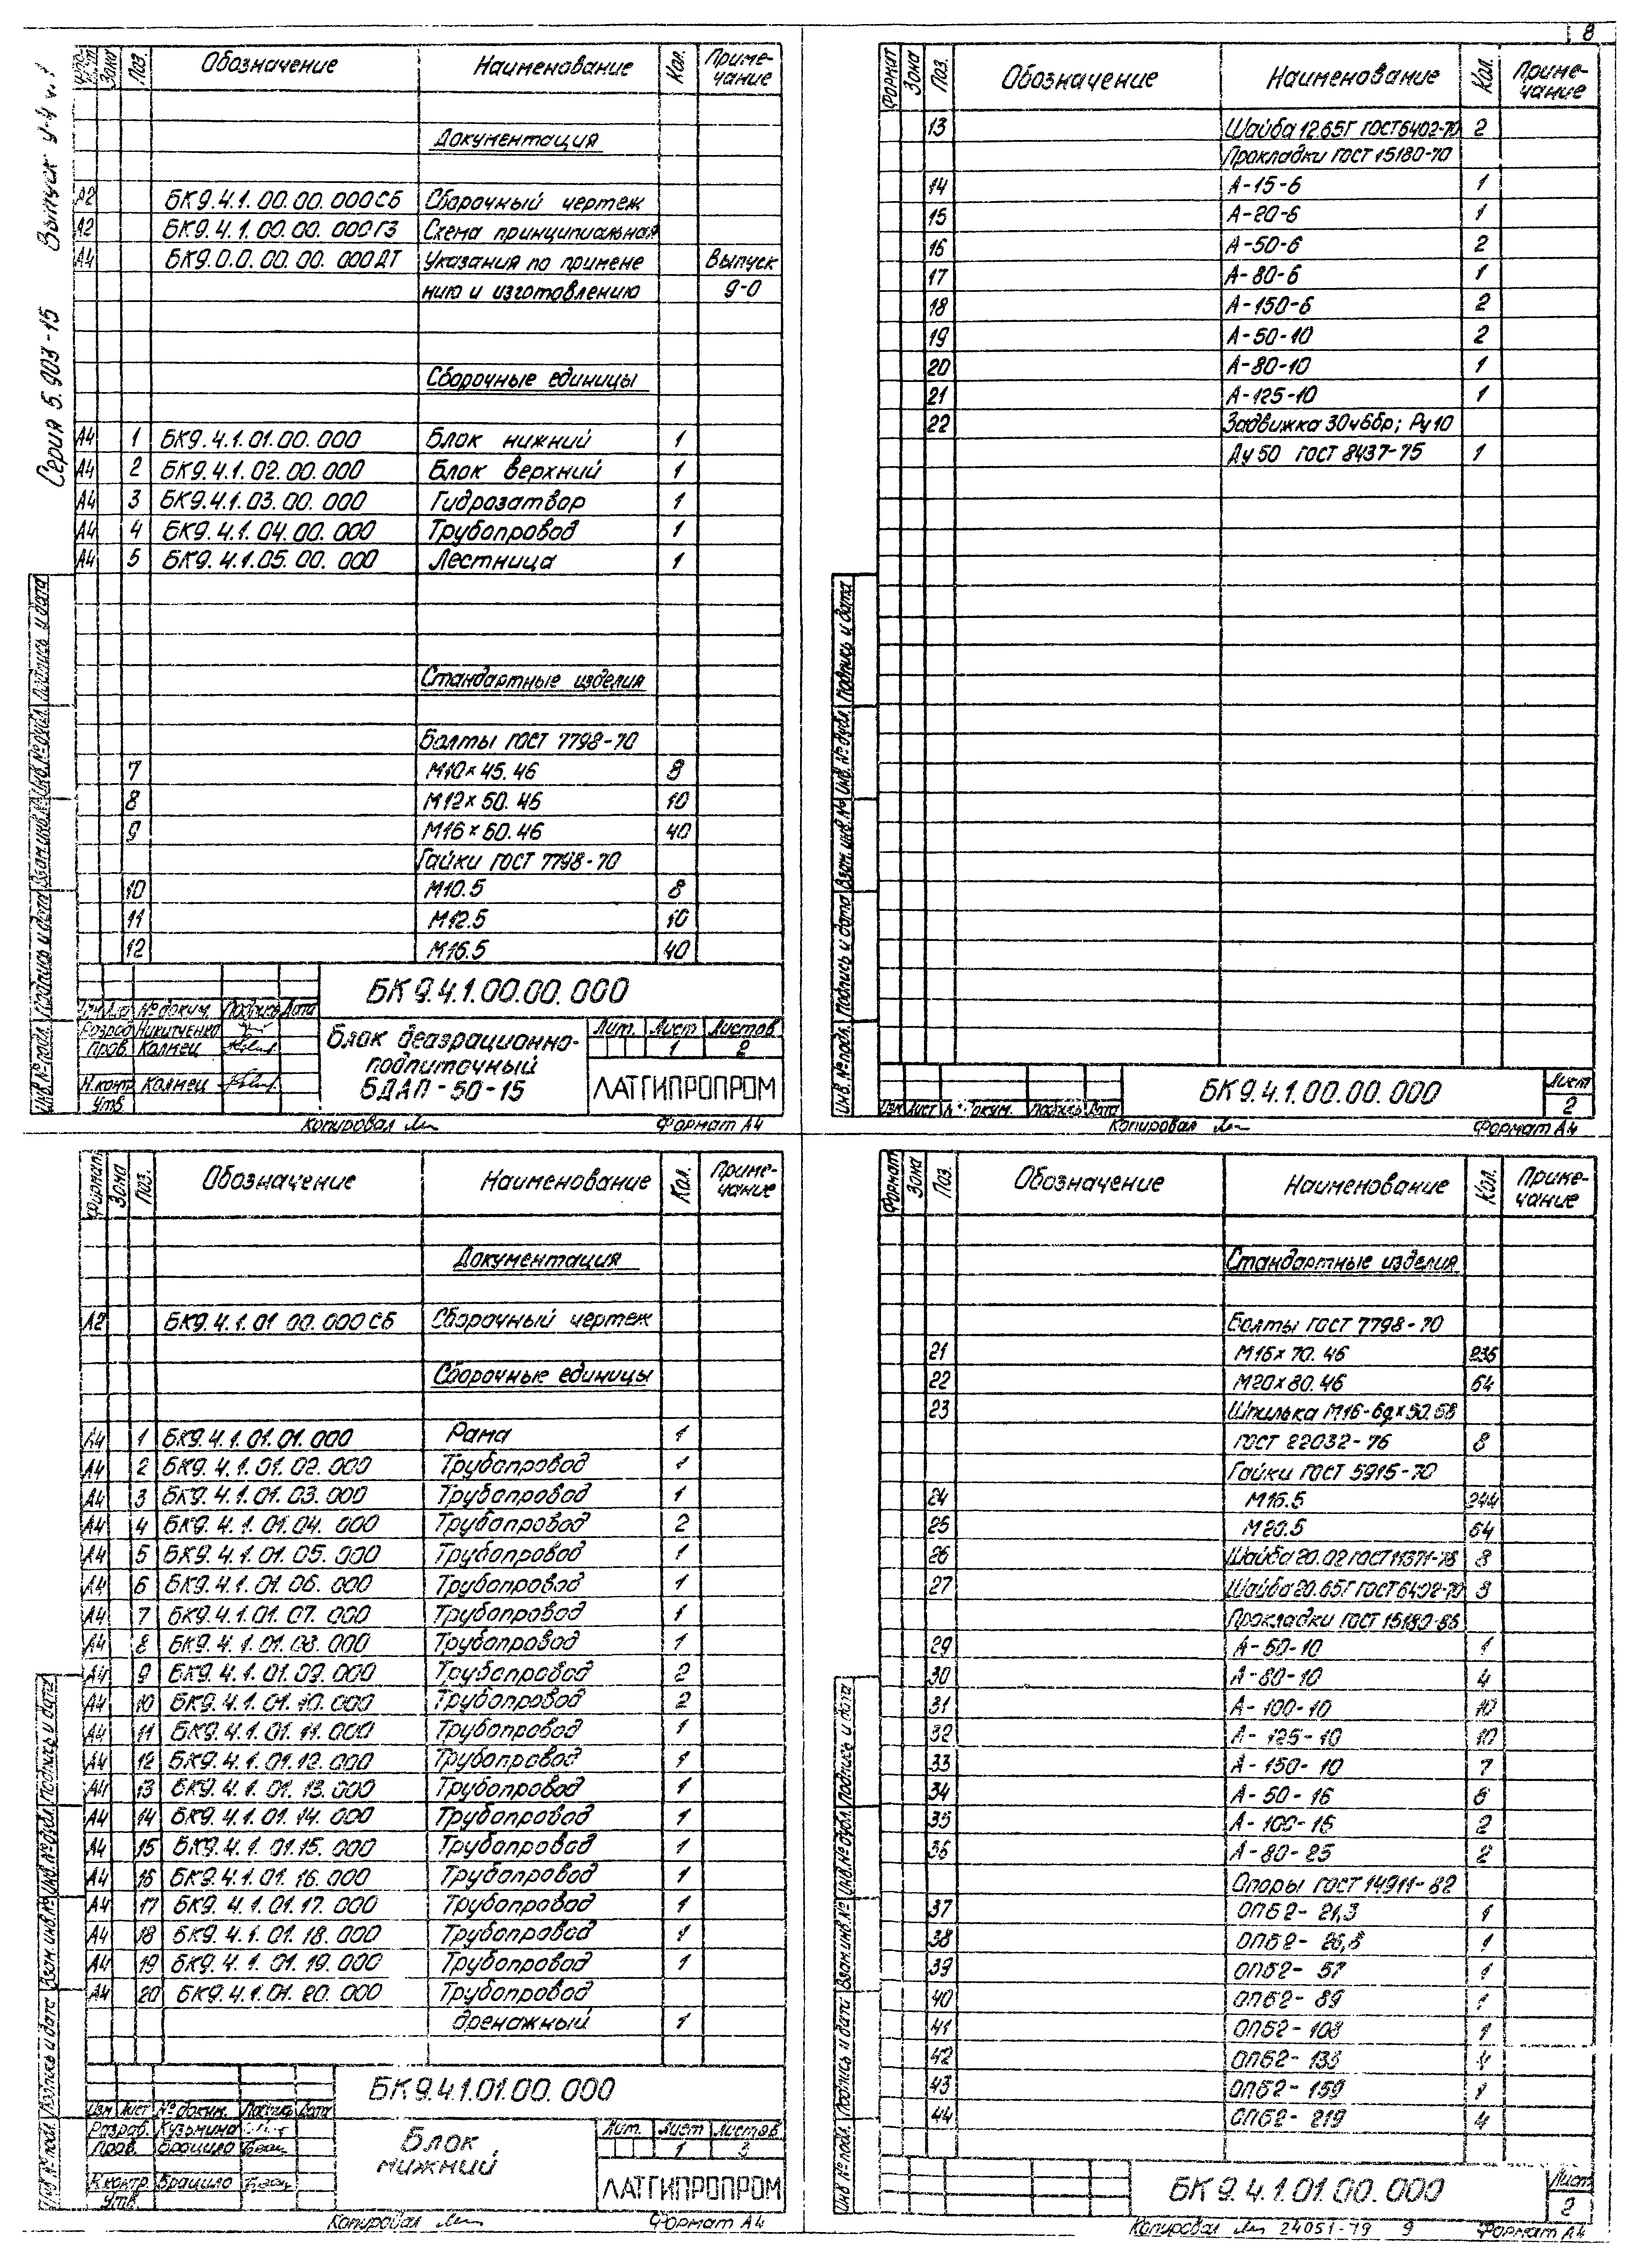 8
Серия 5.903-15 Выпуск У-4 ч.1
Зона Поз. Обозначение Наименование Кол. Приме-
чание
Документация
А2 БК9.4.1.00.00.000СБ Сборочный чертеж
А2 БК9.4.1.00.00.000ГЗ Схема принципиальная
А4 БК9.0.0.00.00.000ДТ Указания по примене Выпуск
нию и изготовлению 9-0
Сборочные единицы
А4 1 БК9.4.1.01.00.000 Блок нижний 1
А4 2 БК9.4.1.02.00.000 Блок верхний 1
А4 3 БК9.4.1.03.00.000 Гидрозатвор 1
А4 4 БК9.4.1.04.00.000 Трубопровод 1
А4 5 БК9.4.1.05.00.000 Лестница 1
Стандартные изделия
Болты ГОСТ 7798-70
7 М10×45.46 8
8 М12×50.46 10
9 М16×60.46 40
Гайки ГОСТ 7798-70
10 М10.5 8
11 М12.5 10
12 М16.5 40
БК9.4.1.00.00.000
№ докум. Подпись Дата
Разраб Никитченко
Пров. Калнец
Н.контр Калнец
Утв.
Блок деаэрационно-
подпиточный
БДАП-50-15
Лит. Лист Листов
1 2
ЛАТГИПРОПРОМ
Инв.№ подл. Подпись и дата Взам.инв.№ Инв.№ дубл. Подпись и дата
Копировал Формат А4
Формат Зона Поз. Обозначение Наименование Кол. Приме-
чание
13 Шайба 12.65Г ГОСТ 6402-70 2
Прокладки ГОСТ 15180-70
14 А-15-6 1
15 А-20-6 1
16 А-50-6 2
17 А-80-6 1
18 А-150-6 2
19 А-50-10 2
20 А-80-10 1
21 А-125-10 1
22 Задвижка 30ч6бр; Ру10
Ду50 ГОСТ 8437-75 1
Инв.№ подл. Подпись и дата Взам.инв.№ Инв.№ дубл. Подпись и дата
Изм Лист № докум. Подпись Дата
БК9.4.1.00.00.000
Лист
2
Копировал Формат А4
Формат Зона Поз. Обозначение Наименование Кол. Приме-
чание
Документация
А2 БК9.4.1.01 00.000СБ Сборочный чертеж
Сборочные единицы
А4 1 БК9.4.1.01.01.000 Рама 1
А4 2 БК9.4.1.01.02.000 Трубопровод 1
А4 3 БК9.4.1.01.03.000 Трубопровод 1
А4 4 БК9.4.1.01.04.000 Трубопровод 2
А4 5 БК9.4.1.01.05.000 Трубопровод 1
А4 6 БК9.4.1.01.06.000 Трубопровод 1
А4 7 БК9.4.1.01.07.000 Трубопровод 1
А4 8 БК9.4.1.01.08.000 Трубопровод 1
А4 9 БК9.4.1.01.09.000 Трубопровод 2
А4 10 БК9.4.1.01.10.000 Трубопровод 2
А4 11 БК9.4.1.01.11.000 Трубопровод 1
А4 12 БК9.4.1.01.12.000 Трубопровод 1
А4 13 БК9.4.1.01.13.000 Трубопровод 1
А4 14 БК9.4.1.01.14.000 Трубопровод 1
А4 15 БК9.4.1.01.15.000 Трубопровод 1
А4 16 БК9.4.1.01.16.000 Трубопровод 1
А4 17 БК9.4.1.01.17.000 Трубопровод 1
А4 18 БК9.4.1.01.18.000 Трубопровод 1
А4 19 БК9.4.1.01.19.000 Трубопровод 1
А4 20 БК9.4.1.01.20.000 Трубопровод
дренажный 1
БК9.4.1.01.00.000
Изм Лист № докум. Подпись Дата
Разраб. Кузьмина
Пров. Брацило
Н.контр Брацило
Утв.
Блок
нижний
Лит. Лист Листов
1 3
ЛАТГИПРОПРОМ
Инв.№ подл. Подпись и дата Взам.инв.№ Инв.№ дубл. Подпись и дата
Копировал Формат А4
Формат Зона Поз. Обозначение Наименование Кол. Приме-
чание
Стандартные изделия
Болты ГОСТ 7798-70
21 М16×70.46 236
22 М20×80.46 64
23 Шпилька М16-6g×50.58
ГОСТ 22032-76 8
Гайки ГОСТ 5915-70
24 М16.5 244
25 М20.5 64
26 Шайба 20.02 ГОСТ 11371-78 8
27 Шайба 20.65Г ГОСТ 6402-70 8
Прокладки ГОСТ 15180-86
29 А-50-10 1
30 А-80-10 4
31 А-100-10 10
32 А-125-10 10
33 А-150-10 7
34 А-50-16 6
35 А-100-16 2
36 А-80-25 2
Опоры ГОСТ 14911-82
37 ОПБ2-21,3 1
38 ОПБ2-26,8 1
39 ОПБ2-57 1
40 ОПБ2-89 1
41 ОПБ2-108 1
42 ОПБ2-133 4
43 ОПБ2-159 1
44 ОПБ2-219 4
Инв.№ подл. Подпись и дата Взам.инв.№ Инв.№ дубл. Подпись и дата
БК9.4.1.01.00.000
Лист
2
Копировал 24051-79 9 Формат А4